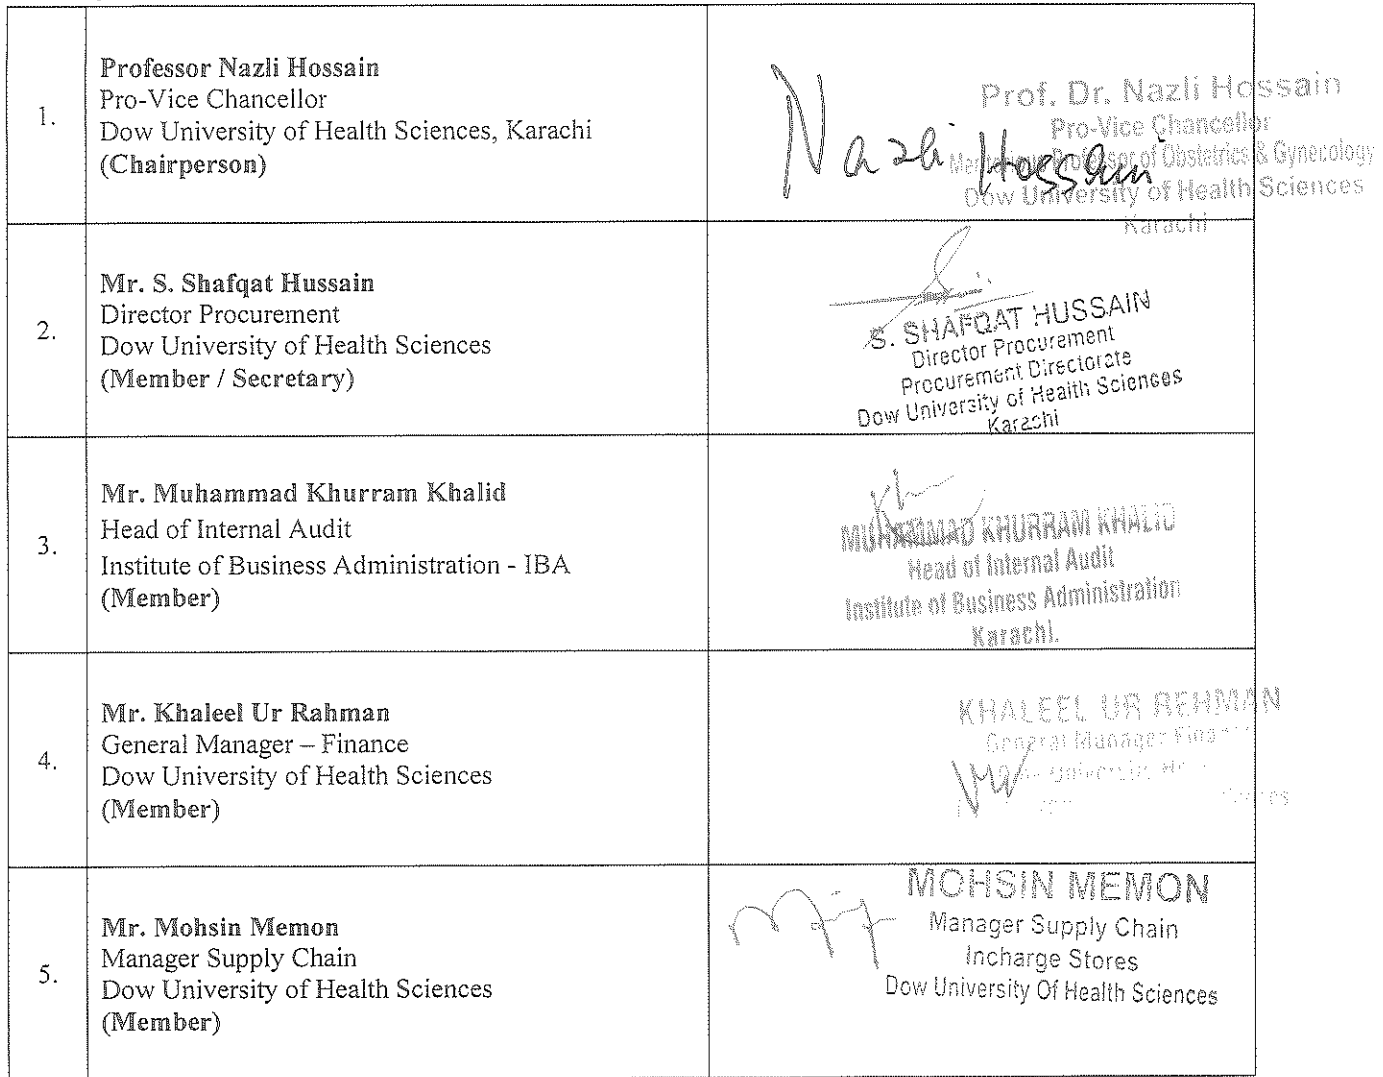 1.
Professor Nazli Hossain
Pro-Vice Chancellor
Dow University of Health Sciences, Karachi
(Chairperson)
Nazli Hossain
Prof. Dr. Nazli Hossain
Pro-Vice Chancellor
Professor of Obstetrics & Gynecology
Dow University of Health Sciences
Karachi
2.
Mr. S. Shafqat Hussain
Director Procurement
Dow University of Health Sciences
(Member / Secretary)
S. SHAFQAT HUSSAIN
Director Procurement
Procurement Directorate
Dow University of Health Sciences
Karachi
3.
Mr. Muhammad Khurram Khalid
Head of Internal Audit
Institute of Business Administration - IBA
(Member)
MUHAMMAD KHURRAM KHALID
Head of Internal Audit
Institute of Business Administration
Karachi.
4.
Mr. Khaleel Ur Rahman
General Manager – Finance
Dow University of Health Sciences
(Member)
KHALEEL UR REHMAN
General Manager
University
5.
Mr. Mohsin Memon
Manager Supply Chain
Dow University of Health Sciences
(Member)
MOHSIN MEMON
Manager Supply Chain
Incharge Stores
Dow University Of Health Sciences